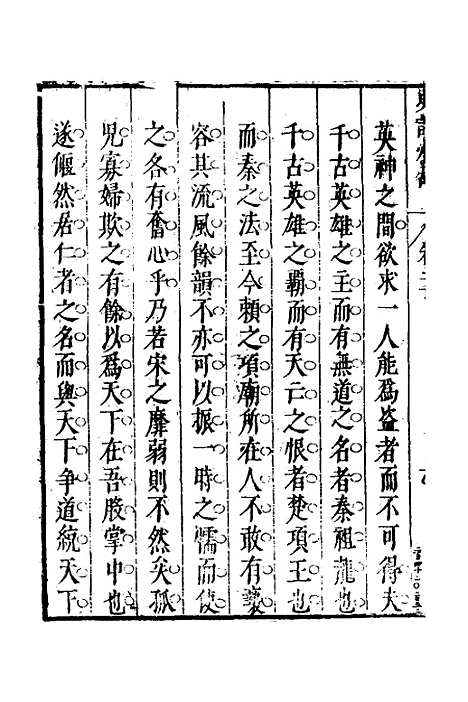 英神之間欲求一人能為盜者而不可得夫
千古英雄之主而有無道之名者秦祖龍也
千古英雄之霸而有天亡之恨者楚項王也
而秦之法至今賴之項廟所在人不敢有褻
容其流風餘韻不亦可以振一時之懦而使
之各有奮心乎乃若宋之靡弱則不然矣孤
兒寡婦欺之有餘以為天下在吾股掌中也
遂偃然居仁者之名而與天下争道統天下